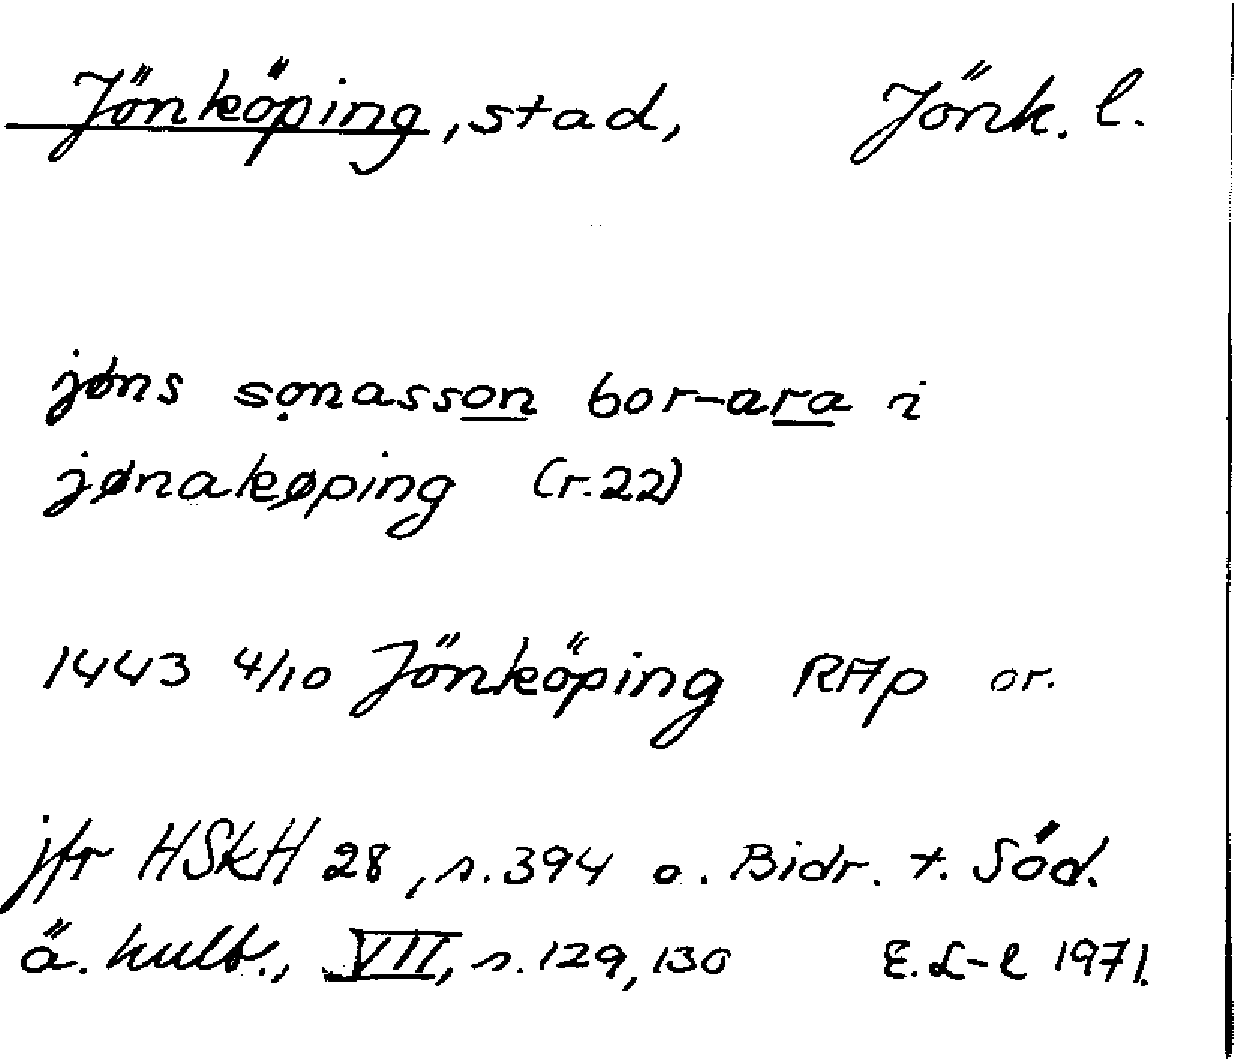 Jönköping, stad, Jönk. l.
jøns sǫnasson bor-ara i
jønakøping (r.22)
1443 4/10 Jönköping RAp or.
jfr HSkH 28, s.394 o. Bidr. t. Söd.
ä. kult., VII, s.129, 130 E. L-l 1971.